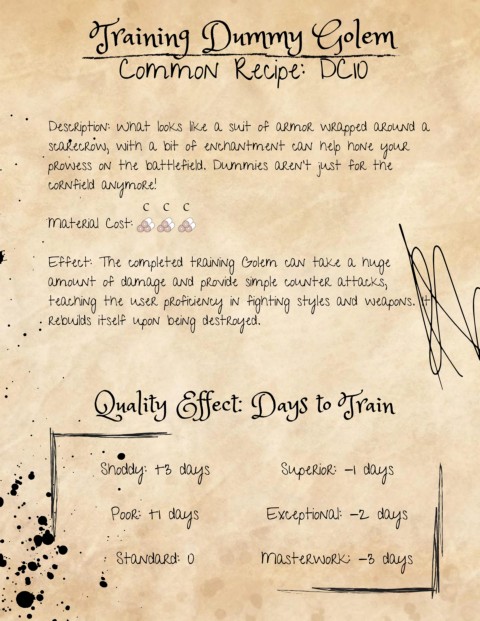 Training Dummy Golem
Common Recipe: DC10
Description: What looks like a suit of armor wrapped around a
scarecrow, with a bit of enchantment can help hone your
prowess on the battlefield. Dummies aren't just for the
cornfield anymore!
C C C
Material Cost:
Effect: The completed training Golem can take a huge
amount of damage and provide simple counter attacks,
teaching the user proficiency in fighting styles and weapons. It
rebuilds itself upon being destroyed.
Quality Effect: Days to Train
Shoddy: +3 days
Superior: -1 days
Poor: +1 days
Exceptional: -2 days
Standard: 0
Masterwork: -3 days